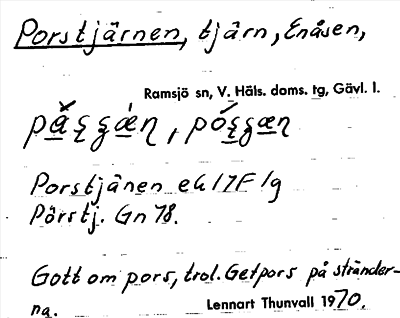 Porstjärnen, tjärn, Enåsen,
Ramsjö sn, V. Häls. doms. tg, Gävl. l.
Porstjänen ek 17F 1g
Pörstj. Gn 78.
Gott om pors, trol. Getpors på stränder-
na.
Lennart Thunvall 1970.